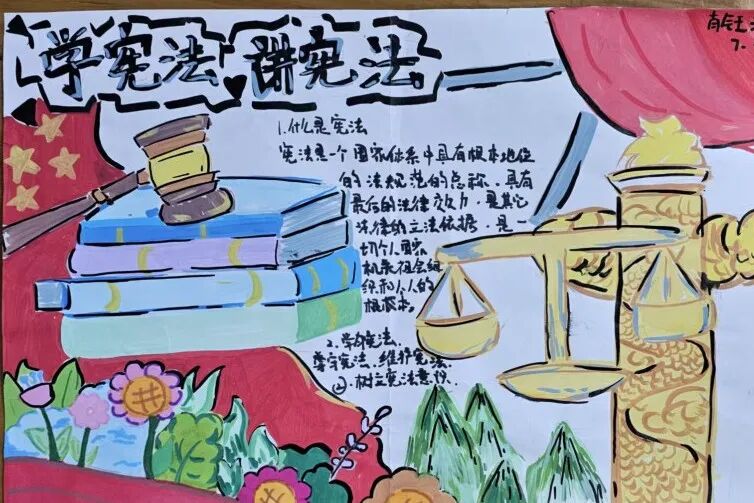 学宪法 讲宪法
7.
1.什么是宪法
宪法是一个国家体系中具有根本地位
的法规范的总称,具有
最后的法律效力,是其它
法律的立法依据,是一
切个人国家
机录组会组
织和个人的
根根本。
2.学习宪法、
尊守宪法、维护宪法、
②.树立宪法意